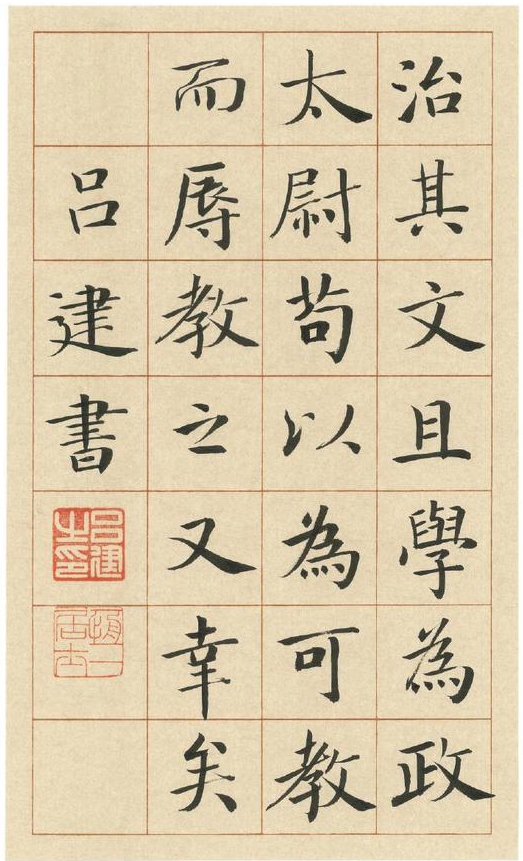 治其文且學為政
太尉苟以為可教
而辱教之又幸矣
吕建書
吕建之印